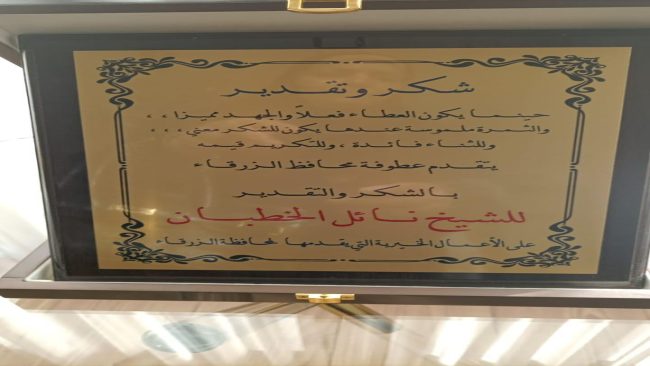 شكر وتقدير
حينما يكون العطاء فعلاً والجهد مميزا ،،
والثمرة ملموسة عندها يكون للشكر معنى ،،،
وللثناء فائدة ، وللتكريم قيمه
يتقدم عطوفة محافظ الزرقاء
بالشكر والتقدير
للشيخ نائل الخطبان
على الأعمال الخيرية التي يقدمها لمحافظة الزرقاء